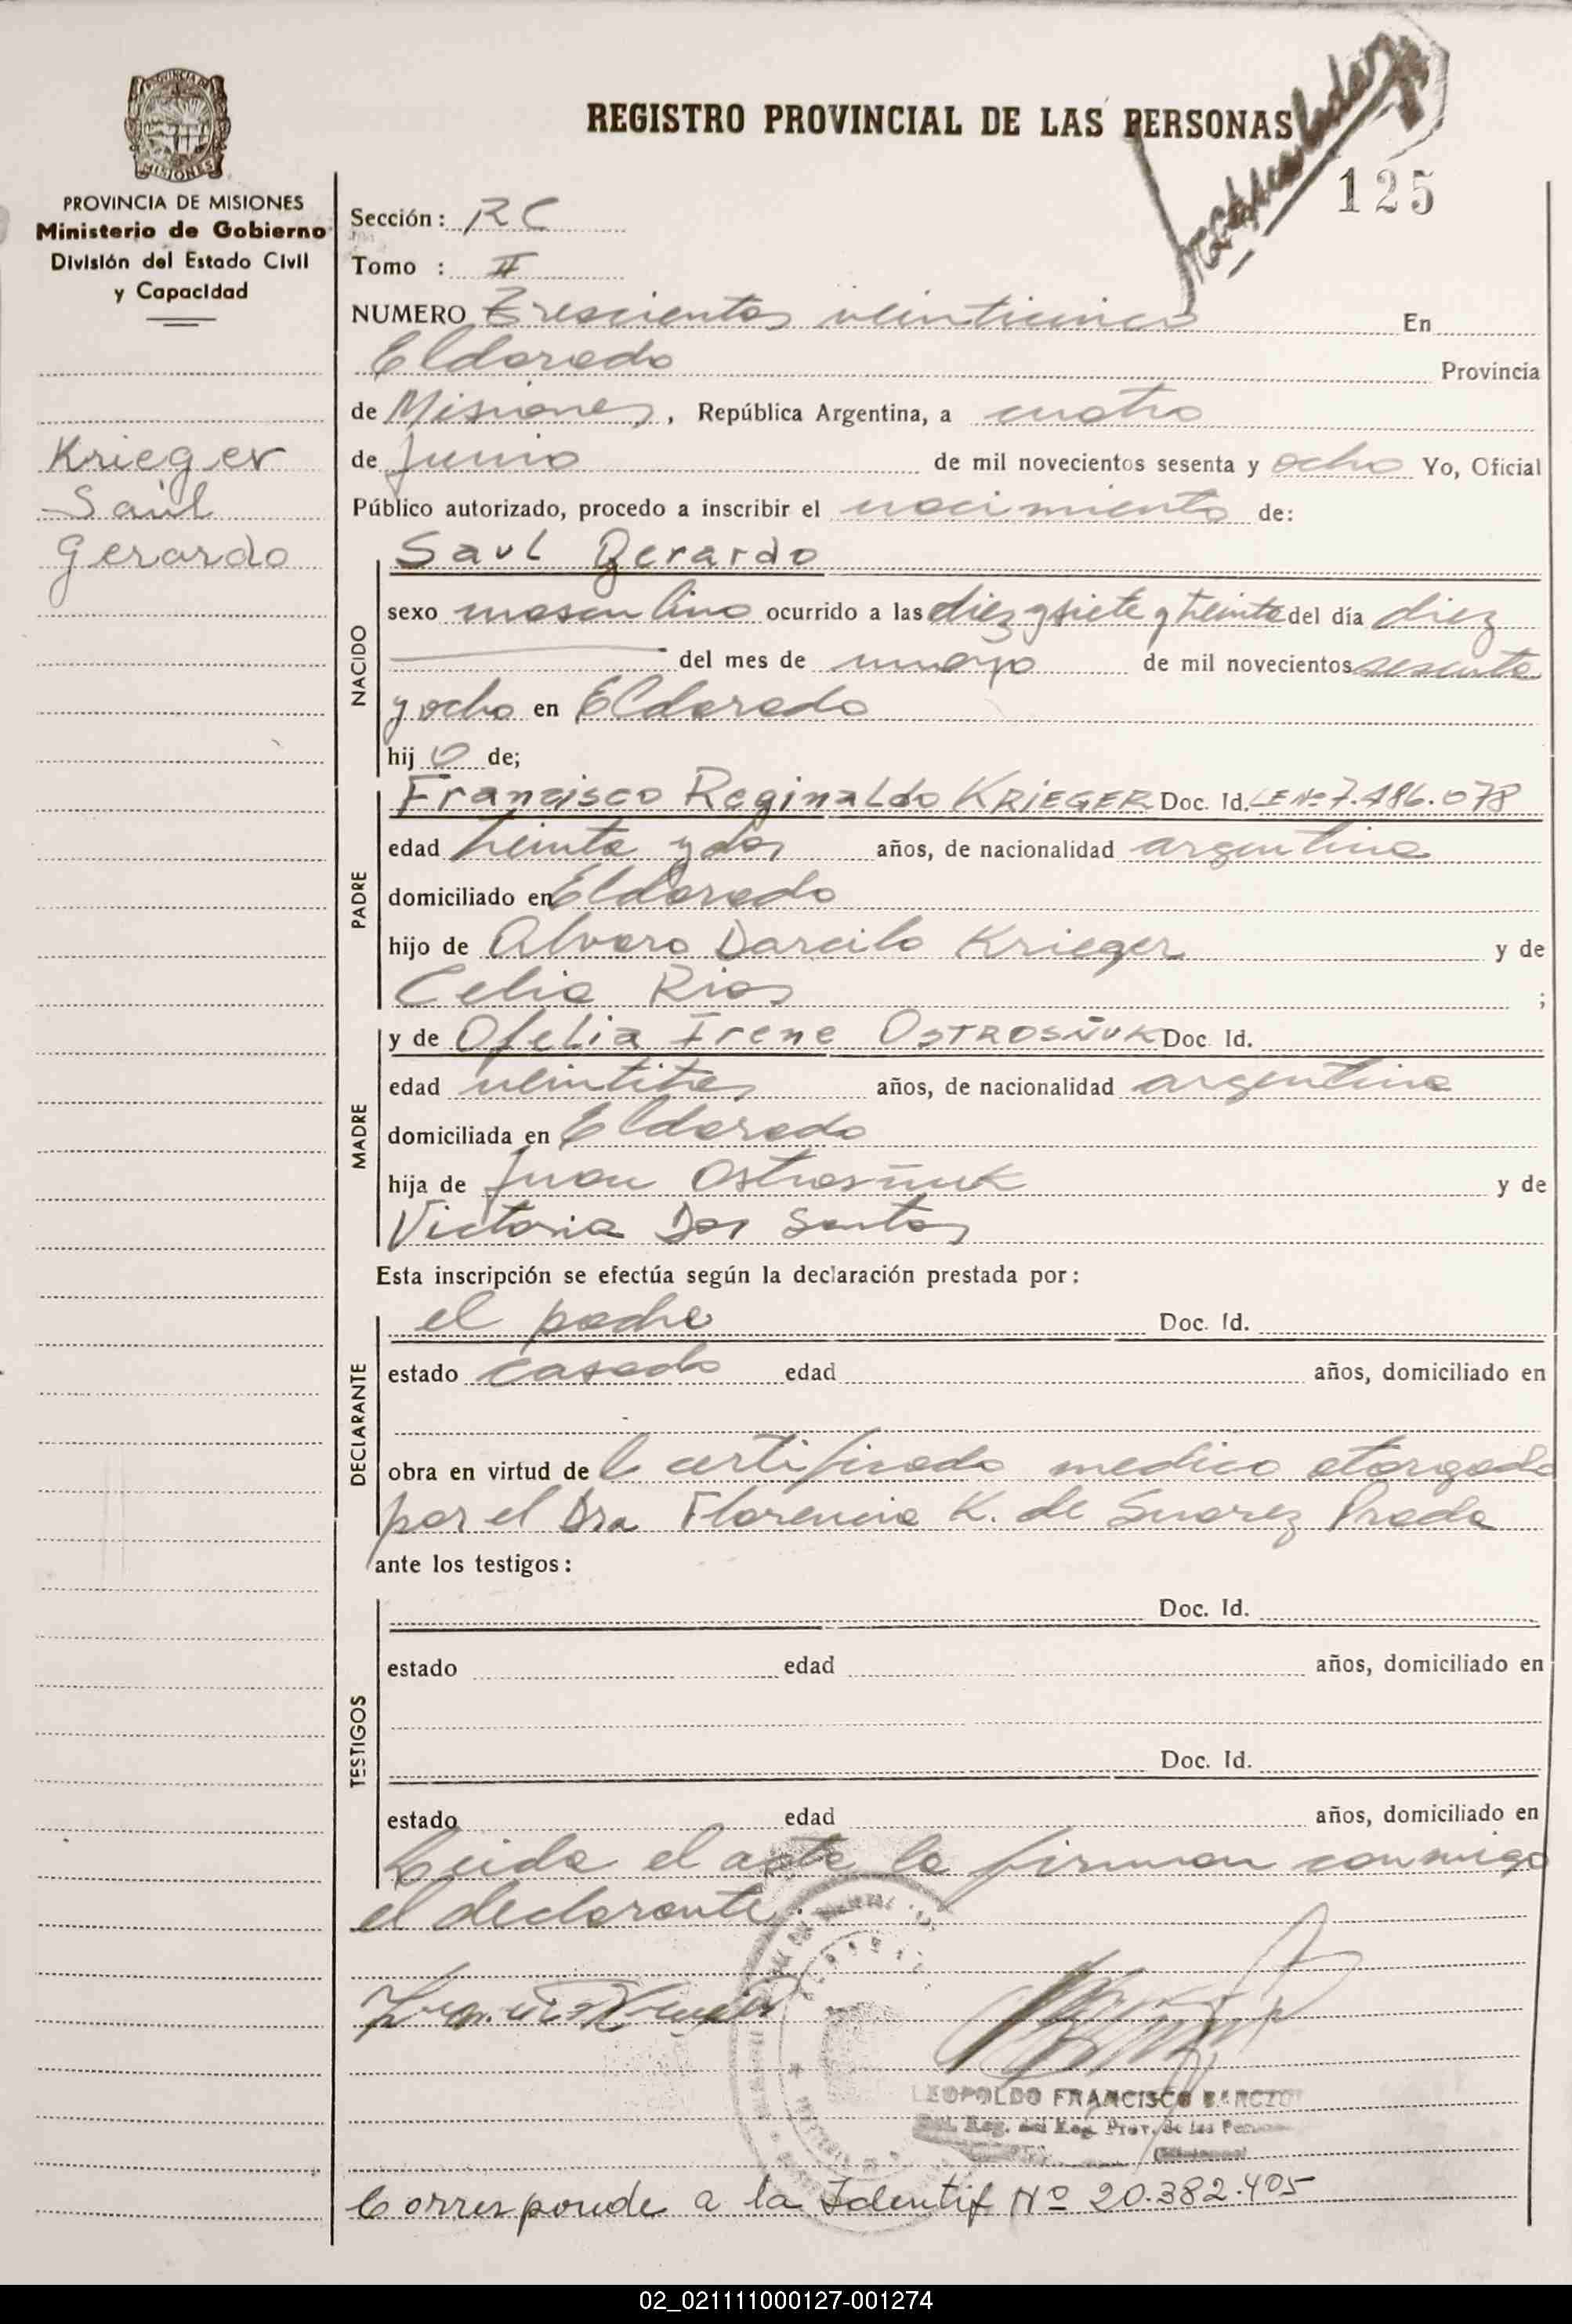 REGISTRO PROVINCIAL DE LAS PERSONAS
125
PROVINCIA DE MISIONES
MISIONES
PROVINCIA DE MISIONES
Ministerio de Gobierno
División del Estado Civil
y Capacidad
Krieger
Saúl
Gerardo
Sección: RC
Tomo : II
NUMERO Trescientos veinticinco En
Eldorado Provincia
de Misiones, República Argentina, a cuatro
de Junio de mil novecientos sesenta y ocho Yo, Oficial
Público autorizado, procedo a inscribir el nacimiento de:
NACIDO
Saul Gerardo
sexo masculino ocurrido a las diez y siete y treinta del día diez
del mes de mayo de mil novecientos sesenta
y ocho en Eldorado
hij o de;
PADRE
Francisco Reginaldo KRIEGER Doc. Id. LE Nº 7.486.078
edad treinta y dos años, de nacionalidad argentina
domiciliado en Eldorado
hijo de Alvaro Darcilo Krieger y de
Celia Rios ;
MADRE
y de Ofelia Irene OSTROSÑUK Doc Id.
edad veintitres años, de nacionalidad argentina
domiciliada en Eldorado
hija de Juan Ostrosñuk y de
Victoria Dos Santos
Esta inscripción se efectúa según la declaración prestada por:
DECLARANTE
el padre Doc. Id.
estado casado edad años, domiciliado en
obra en virtud de l certificado medico otorgado
por el Dra Florencia K. de Suarez Prada
ante los testigos:
TESTIGOS
Doc. Id.
estado edad años, domiciliado en
Doc. Id.
estado edad años, domiciliado en
Leida el acta la firman conmigo
el declarante.
LEOPOLDO FRANCISCO
Reg. del Reg. Prov. de las
Corresponde a la Identif Nº 20.382.405
02_021111000127-001274